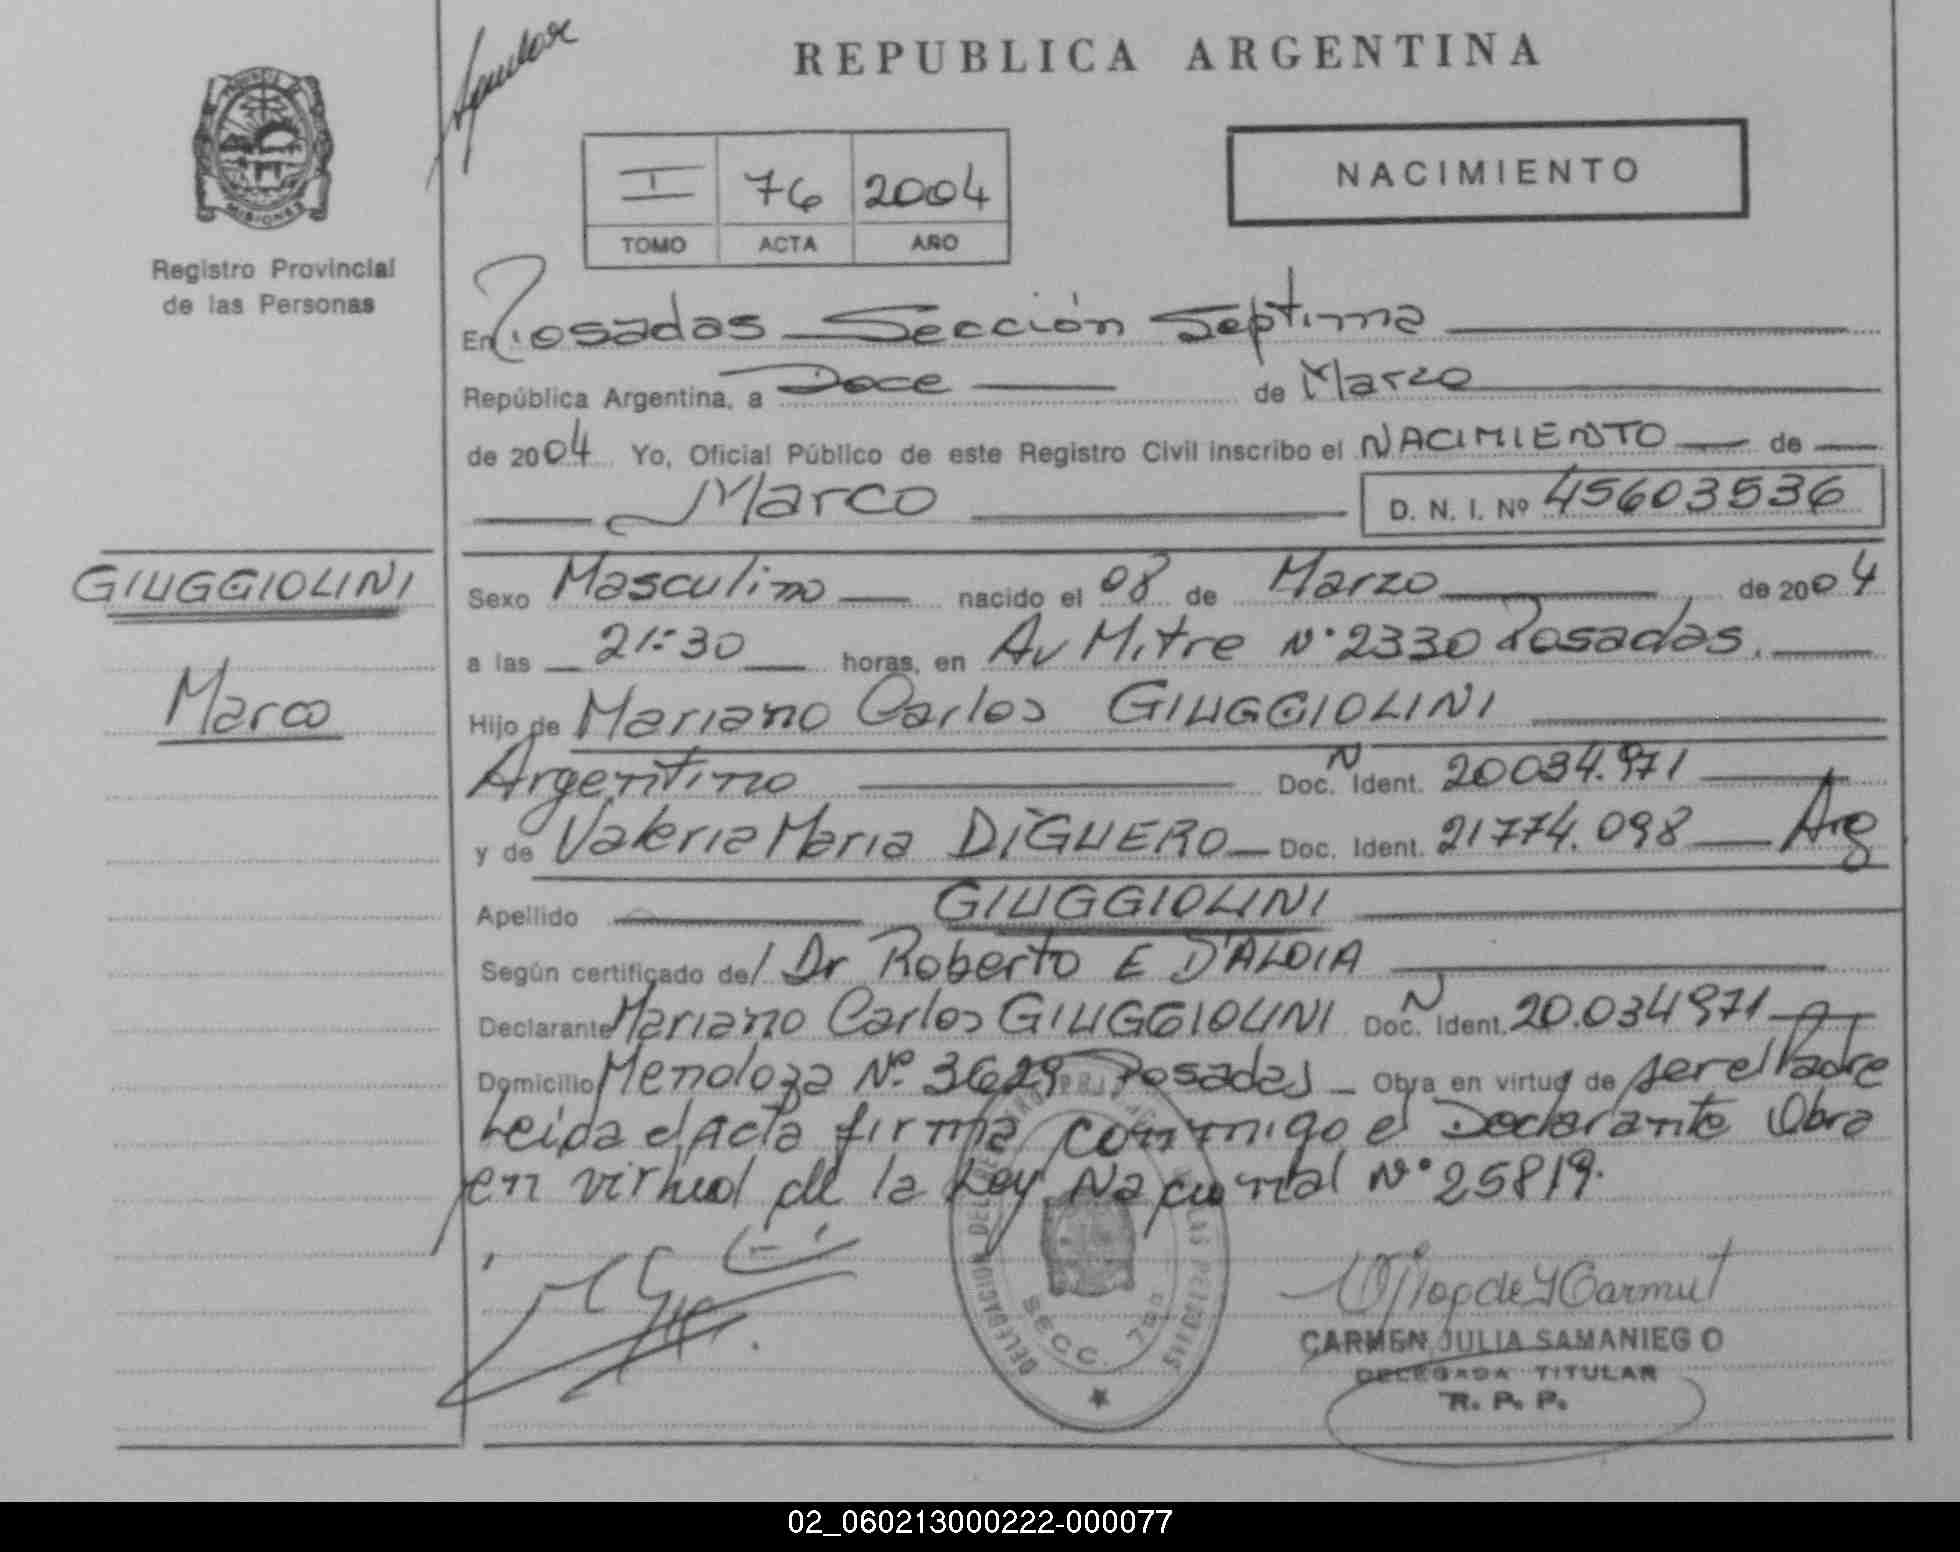 REPUBLICA ARGENTINA
I 76 2004
TOMO ACTA AÑO
NACIMIENTO
MISIONES
Registro Provincial
de las Personas
En Posadas Sección Septima
República Argentina, a Doce de Marzo
de 2004 Yo, Oficial Público de este Registro Civil inscribo el NACIMIENTO de
Marco D. N. I. Nº 45603536
GIUGGIOLINI
Marco
Sexo Masculino nacido el 08 de Marzo de 2004
a las 21:30 horas, en Av Mitre Nº 2330 Posadas.
Hijo de Mariano Carlos GIUGGIOLINI
Argentino Doc. N Ident. 20034.971
y de Valeria Maria DIGUERO Doc. Ident. 21774.098 Arg
Apellido GIUGGIOLINI
Según certificado de/ Dr Roberto E D'ALOIA
Declarante Mariano Carlos GIUGGIOLINI Doc. N Ident. 20.034971
Domicilio Mendoza Nº 3629 Posadas Obra en virtud de ser el Padre
Leida el Acta firma conmigo el Declarante Obra
en virtud de la Ley Nacional Nº 25819.
SECC. 7
CARMEN JULIA SAMANIEGO
DELEGADA TITULAR
R. P. P.
02_060213000222-000077